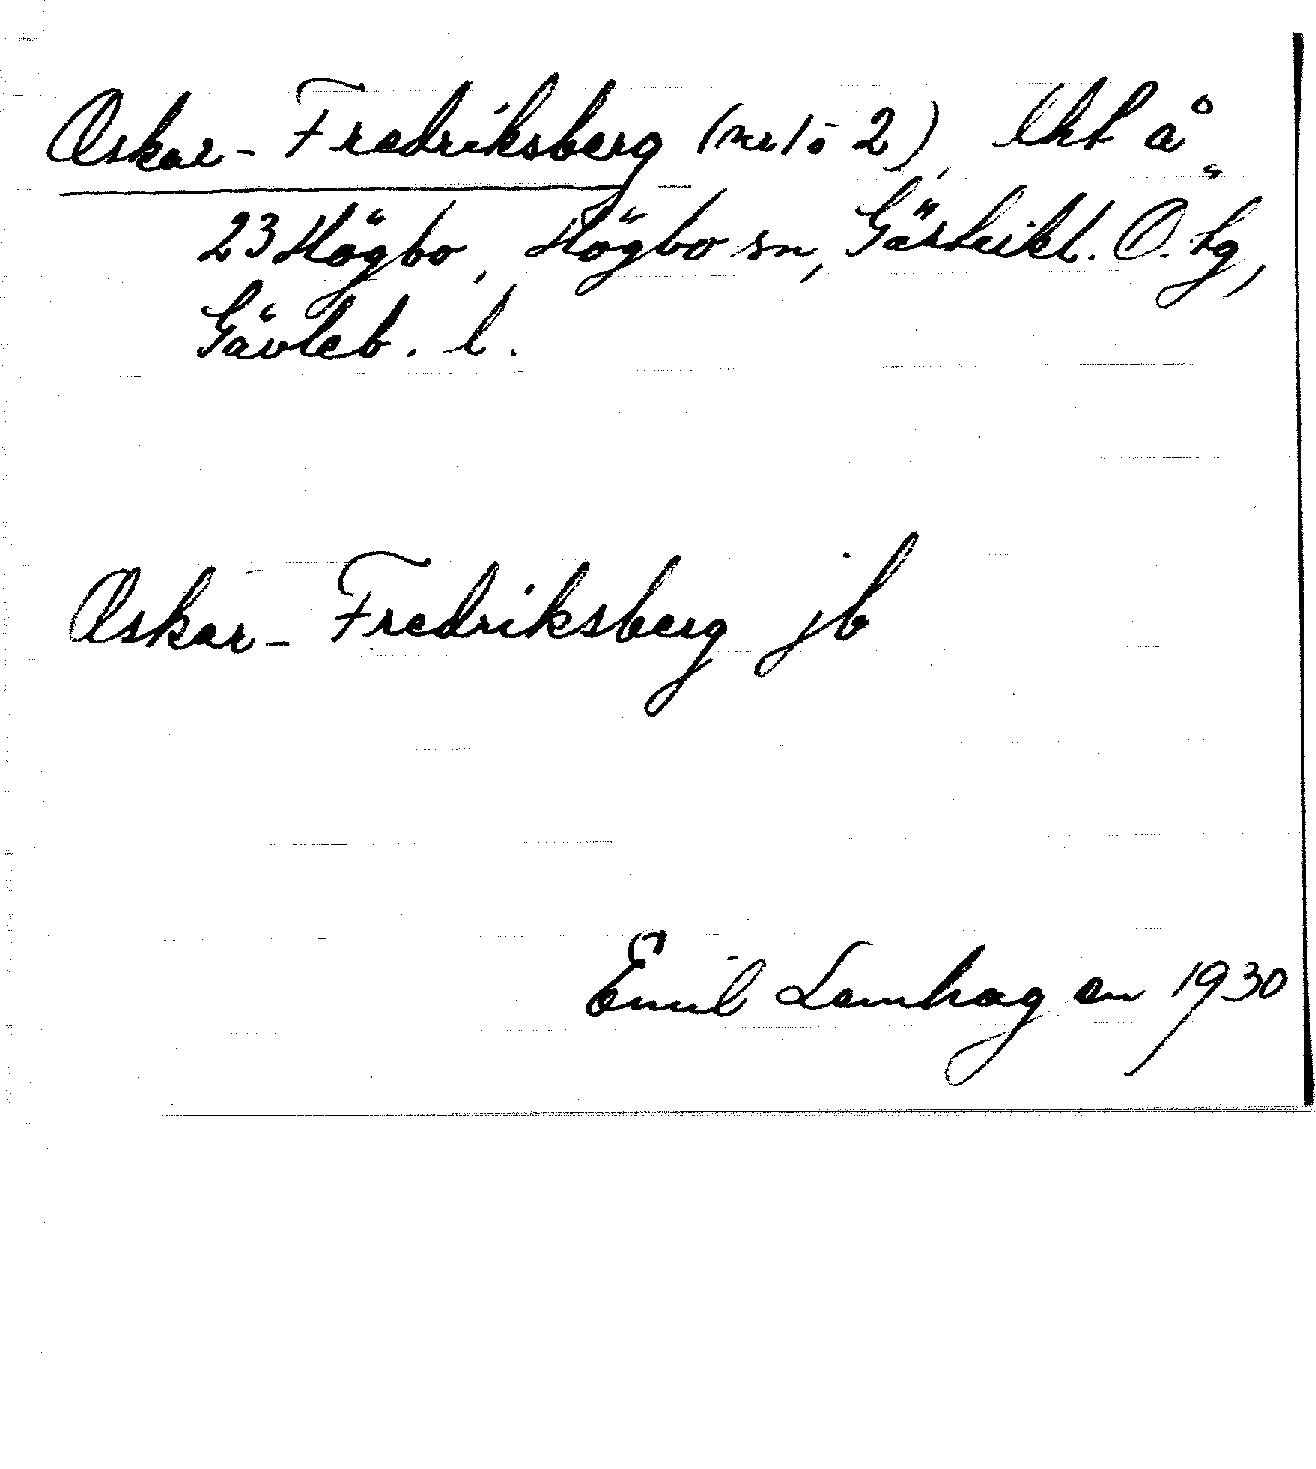 Oskar-Fredriksberg (nr 1 o 2), lht å
23 Högbo, Högbo sn, Gästrikl. Ö. tg,
Gävleb. l.
Oskar-Fredriksberg jb
Emil Lamhag en 1930